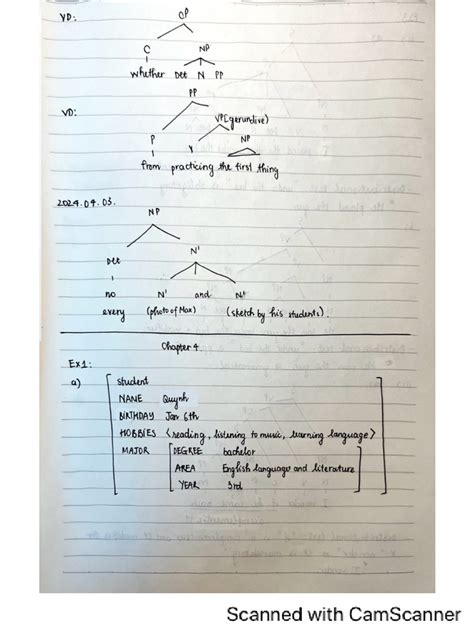 VD:
CP
C NP
whether Det N PP
PP
VD:
VP[gerundive)
P V NP
from practicing the first thing
2024.04.03.
NP
Det N'
no N' and N'
every (photo of Max) (sketch by his students).
Chapter 4
Ex1:
a) student
NANE Quynh
BIRTHDAY Jan 6th
HOBBIES <reading, listening to music, learning language>
MAJOR DEGREE bachelor
AREA English language and literature
YEAR 3rd
Scanned with CamScanner